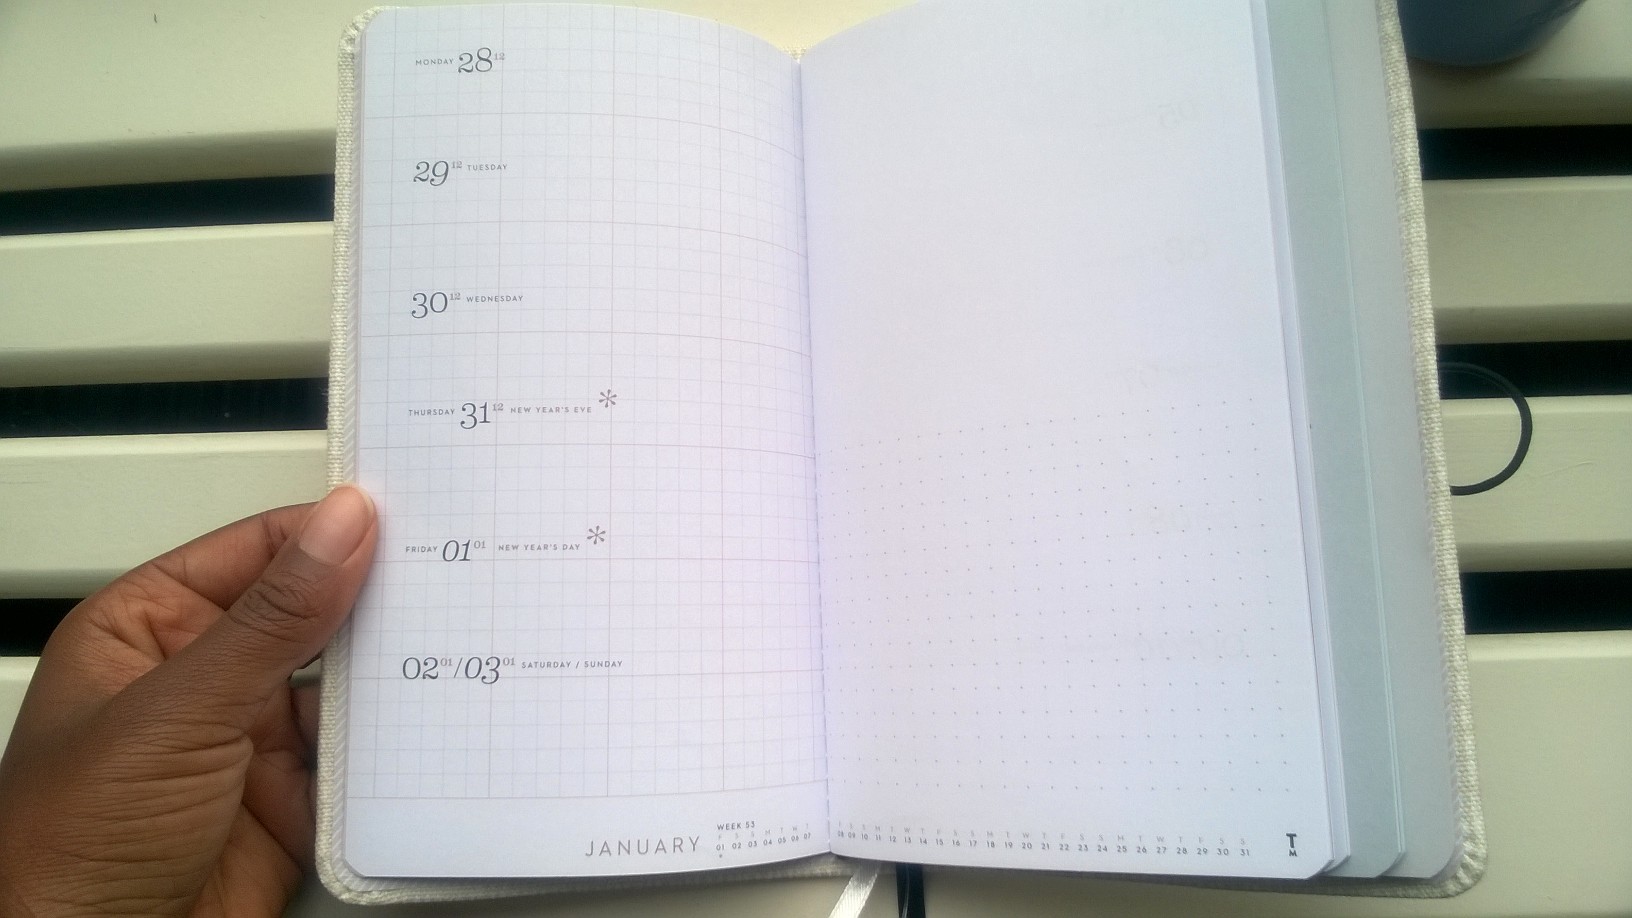 MONDAY 28 12
29 12 TUESDAY
30 12 WEDNESDAY
THURSDAY 31 12 NEW YEAR'S EVE *
FRIDAY 01 01 NEW YEAR'S DAY *
02 01/03 01 SATURDAY / SUNDAY
WEEK 53
F S S M T W T F S S M T W T F S S M T W T F S S M T W T F S S
JANUARY 01 02 03 04 05 06 07 08 09 10 11 12 13 14 15 16 17 18 19 20 21 22 23 24 25 26 27 28 29 30 31
*
T
M